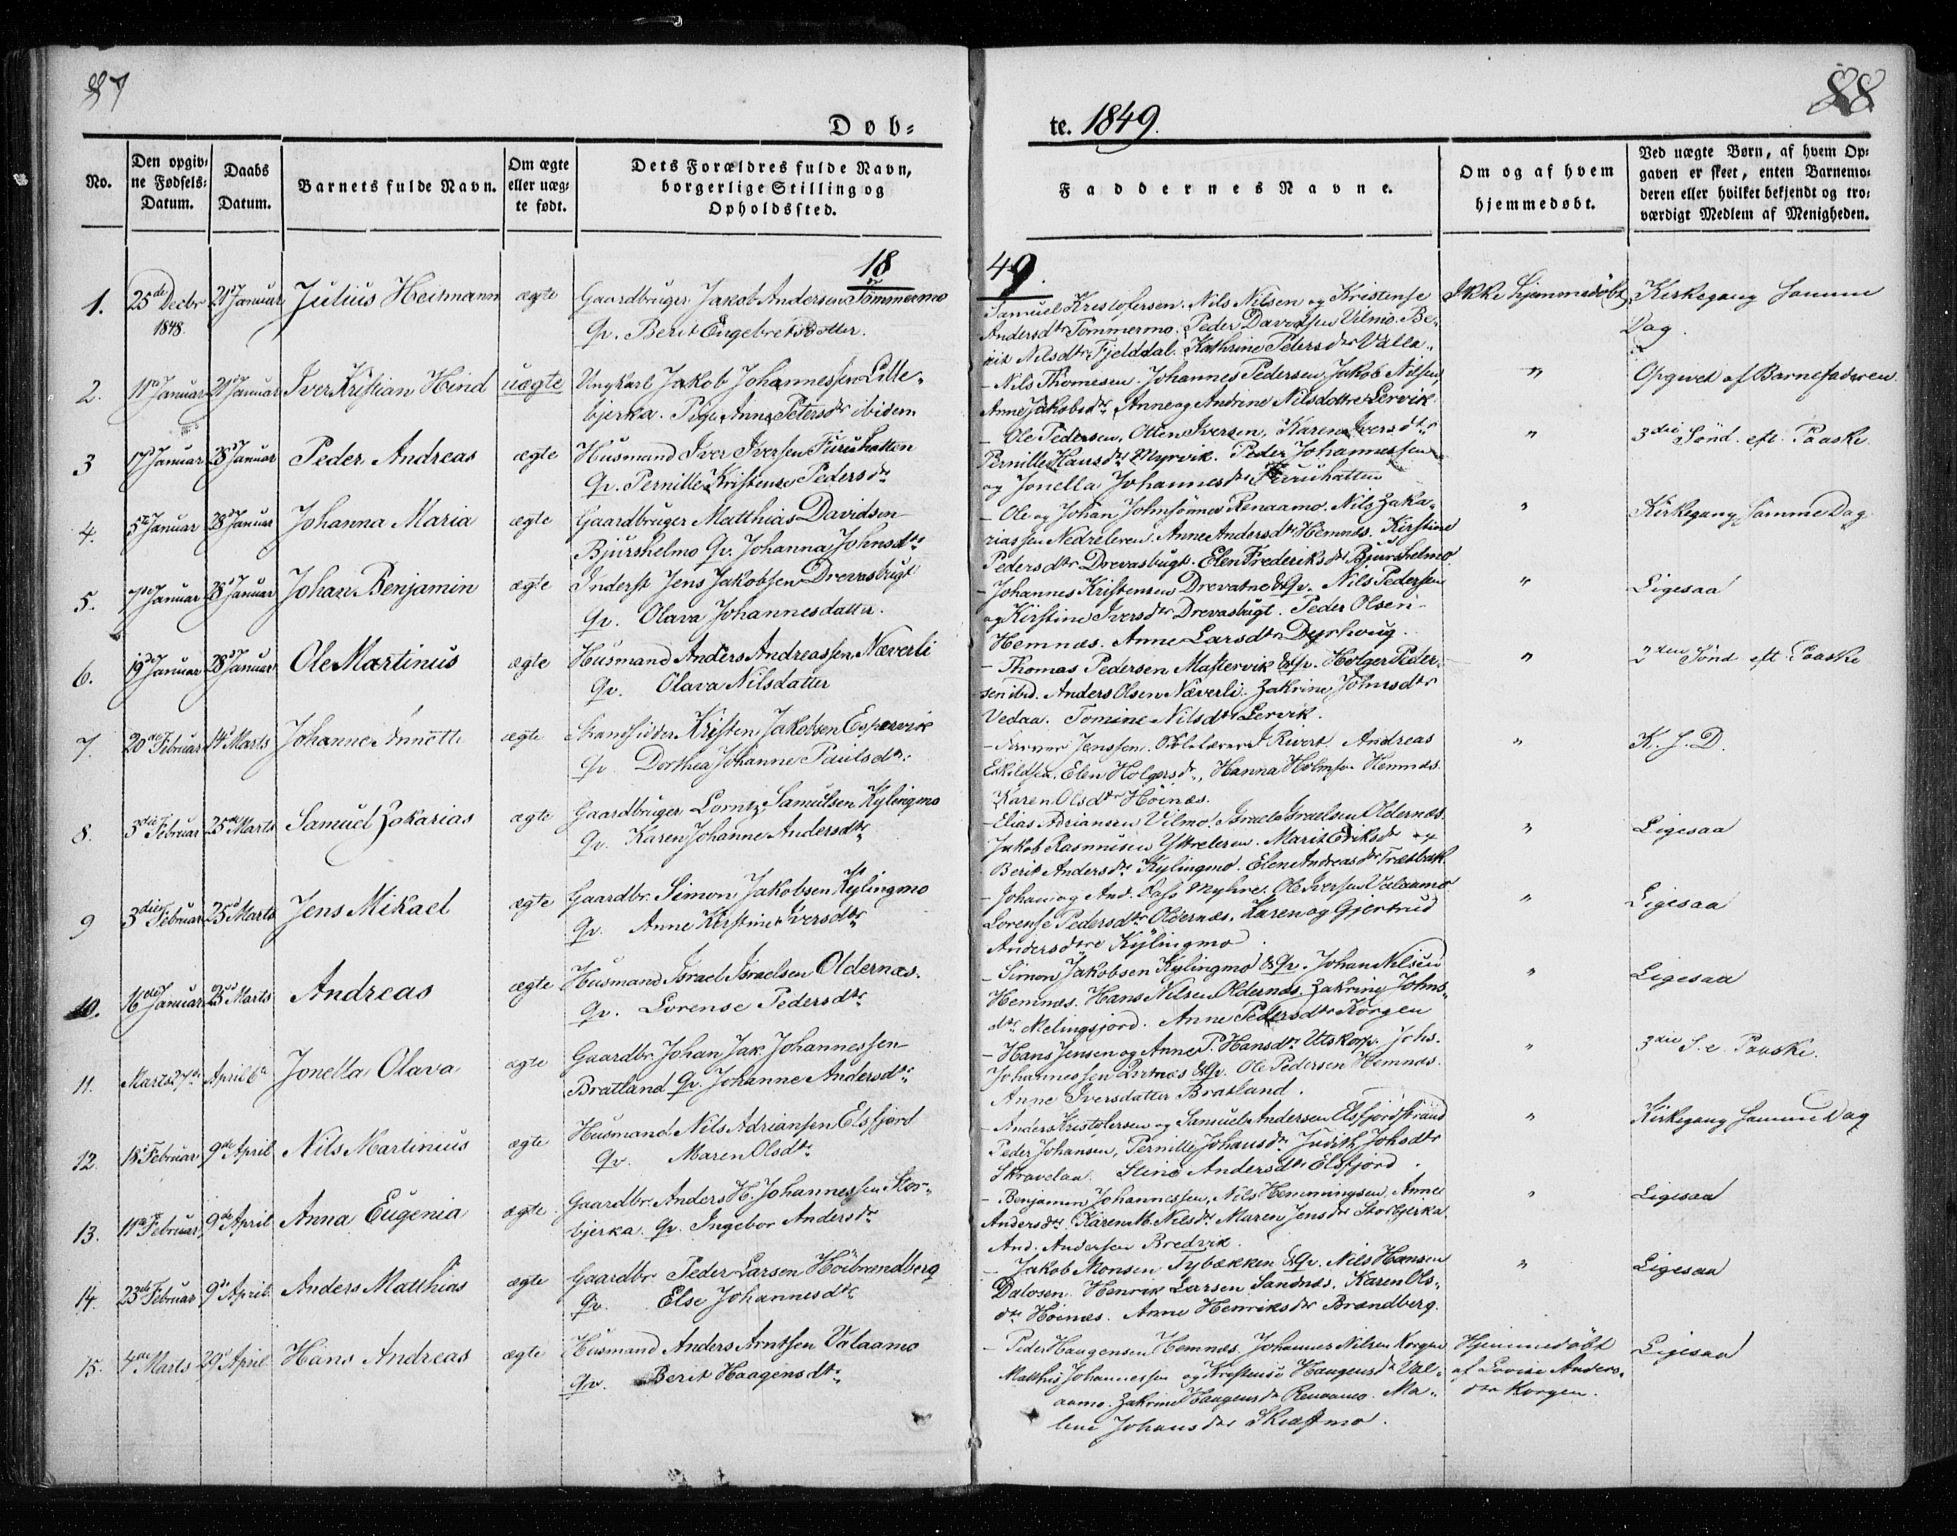 87
88
Døb-
te. 1849.
No.
Den opgiv-
ne Fødsels-
Datum.
Daabs
Datum.
Barnets fulde Navn.
Om ægte
eller uæg-
te født.
Dets Forældres fulde Navn,
borgerlige Stilling og
Opholdssted.
Faddernes Navne.
Om og af hvem
hjemmedøbt.
Ved uægte Børn, af hvem Op-
gaven er skeet, enten Barnemo-
deren eller hvilket bekjendt og tro-
værdigt Medlem af Menigheden.
18
49.
1. 25de Decbr 21 Januar Julius Heitmann ægte Gaardbruger Jakob Andersen Tømmermo
1848. Qv. Berit Engebretsdatter.
Samuel Kristofersen. Nils Nilsen og Kristense Ikke hjemmedøbt Kirkegang samme
Andersdtr Tømmermo. Peder Davidsen Vilmo. Be- Dag.
rit Nilsdtr Fjelddal. Kathrine Petersdtr Valla.
2. 11 Januar 21 Januar Iver Kristian Hind uægte Ungkarl Jakob Johannessen Lille-
bjerka. Pige Anne Petersdtr ibidem
- Nils Thomesen. Johannes Pedersen Jakob Nilsen, " Opgivet af Barnefaderen.
Anne Jakobsdtr, Anne og Andrine Nilsdøttre Lervik
3 17 Januar 28 Januar Peder Andreas ægte Husmand Iver Iversen Furuhatten
Qv. Pernille Kristense Pedersdtr
- Ole Pedersen, Otten Iversen, Karen Iversdtr " 3die Sønd. eft. Paaske
Pernille Hansdtr Myrvik. Peder Johannessen
og Jonella Johannesdtr Furuhatten
4. 5te Januar 28 Januar Johanna Maria ægte Gaardbruger Matthias Davidsen
Bjurshelmo Qv. Johanna Johnsdtr
- Ole og Johan Johnsønner Renaamo. Nils Zaka- " Kirkegang samme Dag.
riassen Nedreleren. Anne Andersdtr Hemnes. Kirstine
Pedersdtr Drevasbugt. Elen Frederiksdtr Bjurshelmo
5. 7de Januar 28 Januar Johan Benjamin ægte Inderst Jens Jakobsen Drevasbugt
Qv. Olava Johannesdatter.
- Johannes Kristensen Drevatne &Qv. Nils Pedersen " Ligesaa
og Kirstine Iversdtr Drevasbugt. Peder Olsen
Hemnæs. Anne Larsdtr Dyrhoug.
6. 19de Januar 28 Januar Ole Martinus ægte Husmand Anders Andreassen Næverli
Qv. Olava Nilsdatter
- Thomas Pedersen Mastervik &Qv. Holger Peder- " 2den Sønd eft Paaske
sen ibd. Anders Olsen Næverli. Zakrine Johnsdtr
Vedaa. Tomine Nilsdtr Lervik.
7. 20de Februar 14 Marts Johanne Annette ægte Strandsidder Kristen Jakobsen Espærvik
Qv Dorthea Johanne Paulsdtr.
Jenssen. Skolelærer Andreas " K. S. D.
Eskildsen. Elen Holgersdtr, Hanna Holmsen Hemnæs.
Karen Olsdtr Høinæs.
8. 3die Februar 25de Marts Samuel Zakarias ægte Gaardbruger Lorntz Samuelsen Kylingmo
Qv. Karen Johanne Andersdtr
- Elias Adriansen Vilmo. Israel Israelsen Oldernæs. " Ligesaa
Jakob Rasmussen Ytreleren. Marit Eriksdtr
Berit Andersdtr Kylingmo. Elen Andreasdtr Træthak.
9 3die Februar 25 Marts Jens Mikael ægte Gaardbr. Simon Jakobsen Kylingmo
Qv. Anne Kirstine Iversdtr
- Johan og And. Myhre. Ole Iversen Valaamo " Ligesaa
Lorense Pedersdtr Oldernæs. Karen og Gjertrud
Andersdtre Kylingmo.
10. 16de Januar 25 Marts Andreas ægte Husmand Israel Israelsen Oldernæs.
Qv. Lorense Pedersdtr
- Simon Jakobsen Kylingmo &Qv. Johan Nilsen " Ligesaa
Hemnæs. Hans Nilsen Oldernæs. Zakrine Johns-
dtr Melingsjord. Anne Pedersdtr Korgen
11. Marts April 6te Jonella Olava ægte Gaardbr. Johan Jak Johannessen
Bratland Qv. Johanne Andersdtr
- Hans Jensen og Anne P. Hansdtr Utskorp. Johs. " 3die S. e. Paaske.
Johannessen &Qv. Ole Pedersen Hemnæs.
Anne Iversdatter Bratland.
12. 18 Februar 9de April Nils Martinius ægte Husmand Nils Adriansen Elsfjord
Qv. Maren Olsdtr
- Anders Kristofersen og Samuel Andersen Elsfjordstrand " Kirkegang samme Dag
Peder Johansen, Pernille Johansdtr Judith Johsdtr
Skravelaa. Stine Andersdtr Elsfjord.
13. 11te Februar 9de April Anna Eugenia ægte Gaardbr. Anders H. Johannessen Stor-
bjerka. Qv. Ingebor Andersdtr
- Benjamin Johannessen, Nils Hemmingsen, Anne " Ligesaa
Andersdtr Karen M. Nilsdtr Maren Jensdtr Storbjerka.
And. Andersen Bredvik.
14. 23de Februar 9de April. Anders Matthias ægte Gaardbr. Peder Larsen Høibrendberg
Qv. Else Johannesdtr
- Jakob Monsen Tybækken &Qv. Nils Hansen " Ligesaa
Dalosen. Henrik Larsen Sandnæs. Karen Ols-
dtr Høinæs. Anne Henriksdtr Brændberg.
15. 4de Marts 29 April Hans Andreas ægte Husmand Anders Arntsen Valaamo
Qv. Berit Haagensdtr
- Peder Haugensen Hemnæs. Johannes Nilsen Korgen Hjemmedøbt Ligesaa
Matthis Johannessen og Kristense Haugensdtr Val- af Lovise Anders-
aamo. Zakrine Haugensdtr Renaamo. Ma- dtr Korgen.
lene Johansdtr Skrastmo.